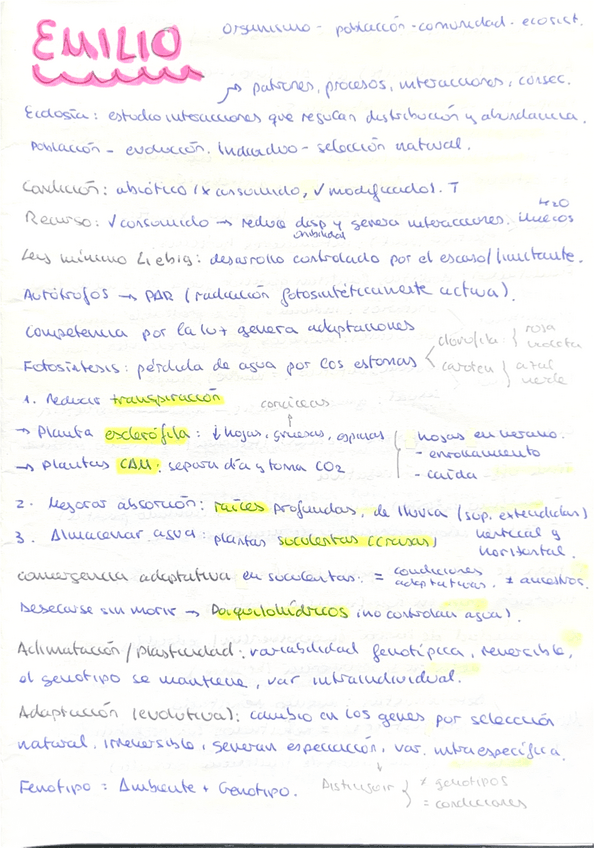 EMILIO
Organismo - población - comunidad - ecosist.
→ patrones, procesos, interacciones, consec.
Ecología: estudio interacciones que regulan distribución y abundancia.
Población - evolución. Individuo - selección natural.
Condición: abiótico (x consumido, ✓ modificado). T
Recurso: ✓ consumido → reduce disp y genera interacciones. huecos
onibilidad
H2O
Ley mínimo Liebig: desarrollo controlado por el escaso/limitante.
Autótrofos → PAR (radiación fotosintéticamente activa).
Competencia por la luz genera adaptaciones
Fotosíntesis: pérdida de agua por los estomas
clorofila { rosa
violeta
caroten { azul
verde
1. Reducir transpiración
coriáceas
→ Planta esclerófila: ↓ hojas, gruesas, espinas
hojas en verano.
- enrollamiento
- caída
→ Plantas CAM: separa día y toma CO2
2. Mejorar absorción: raíces profundas, de lluvia (sup. extendidas)
3. Almacenar agua: plantas suculentas (crasas)
vertical y
horizontal.
Convergencia adaptativa en suculentas: = condiciones
adaptativas. ≠ ancestros.
Desecarse sin morir → Poiquilohídricos (no controlan agua).
Aclimatación / plasticidad: variabilidad fenotípica, reversible,
el genotipo se mantiene, var intraindividual.
Adaptación (evolutiva): cambio en los genes por selección
natural. irreversible, generan especiación, var. intraespecífica.
Fenotipo = Ambiente + Genotipo.
Distinguir } ≠ genotipos
= condiciones